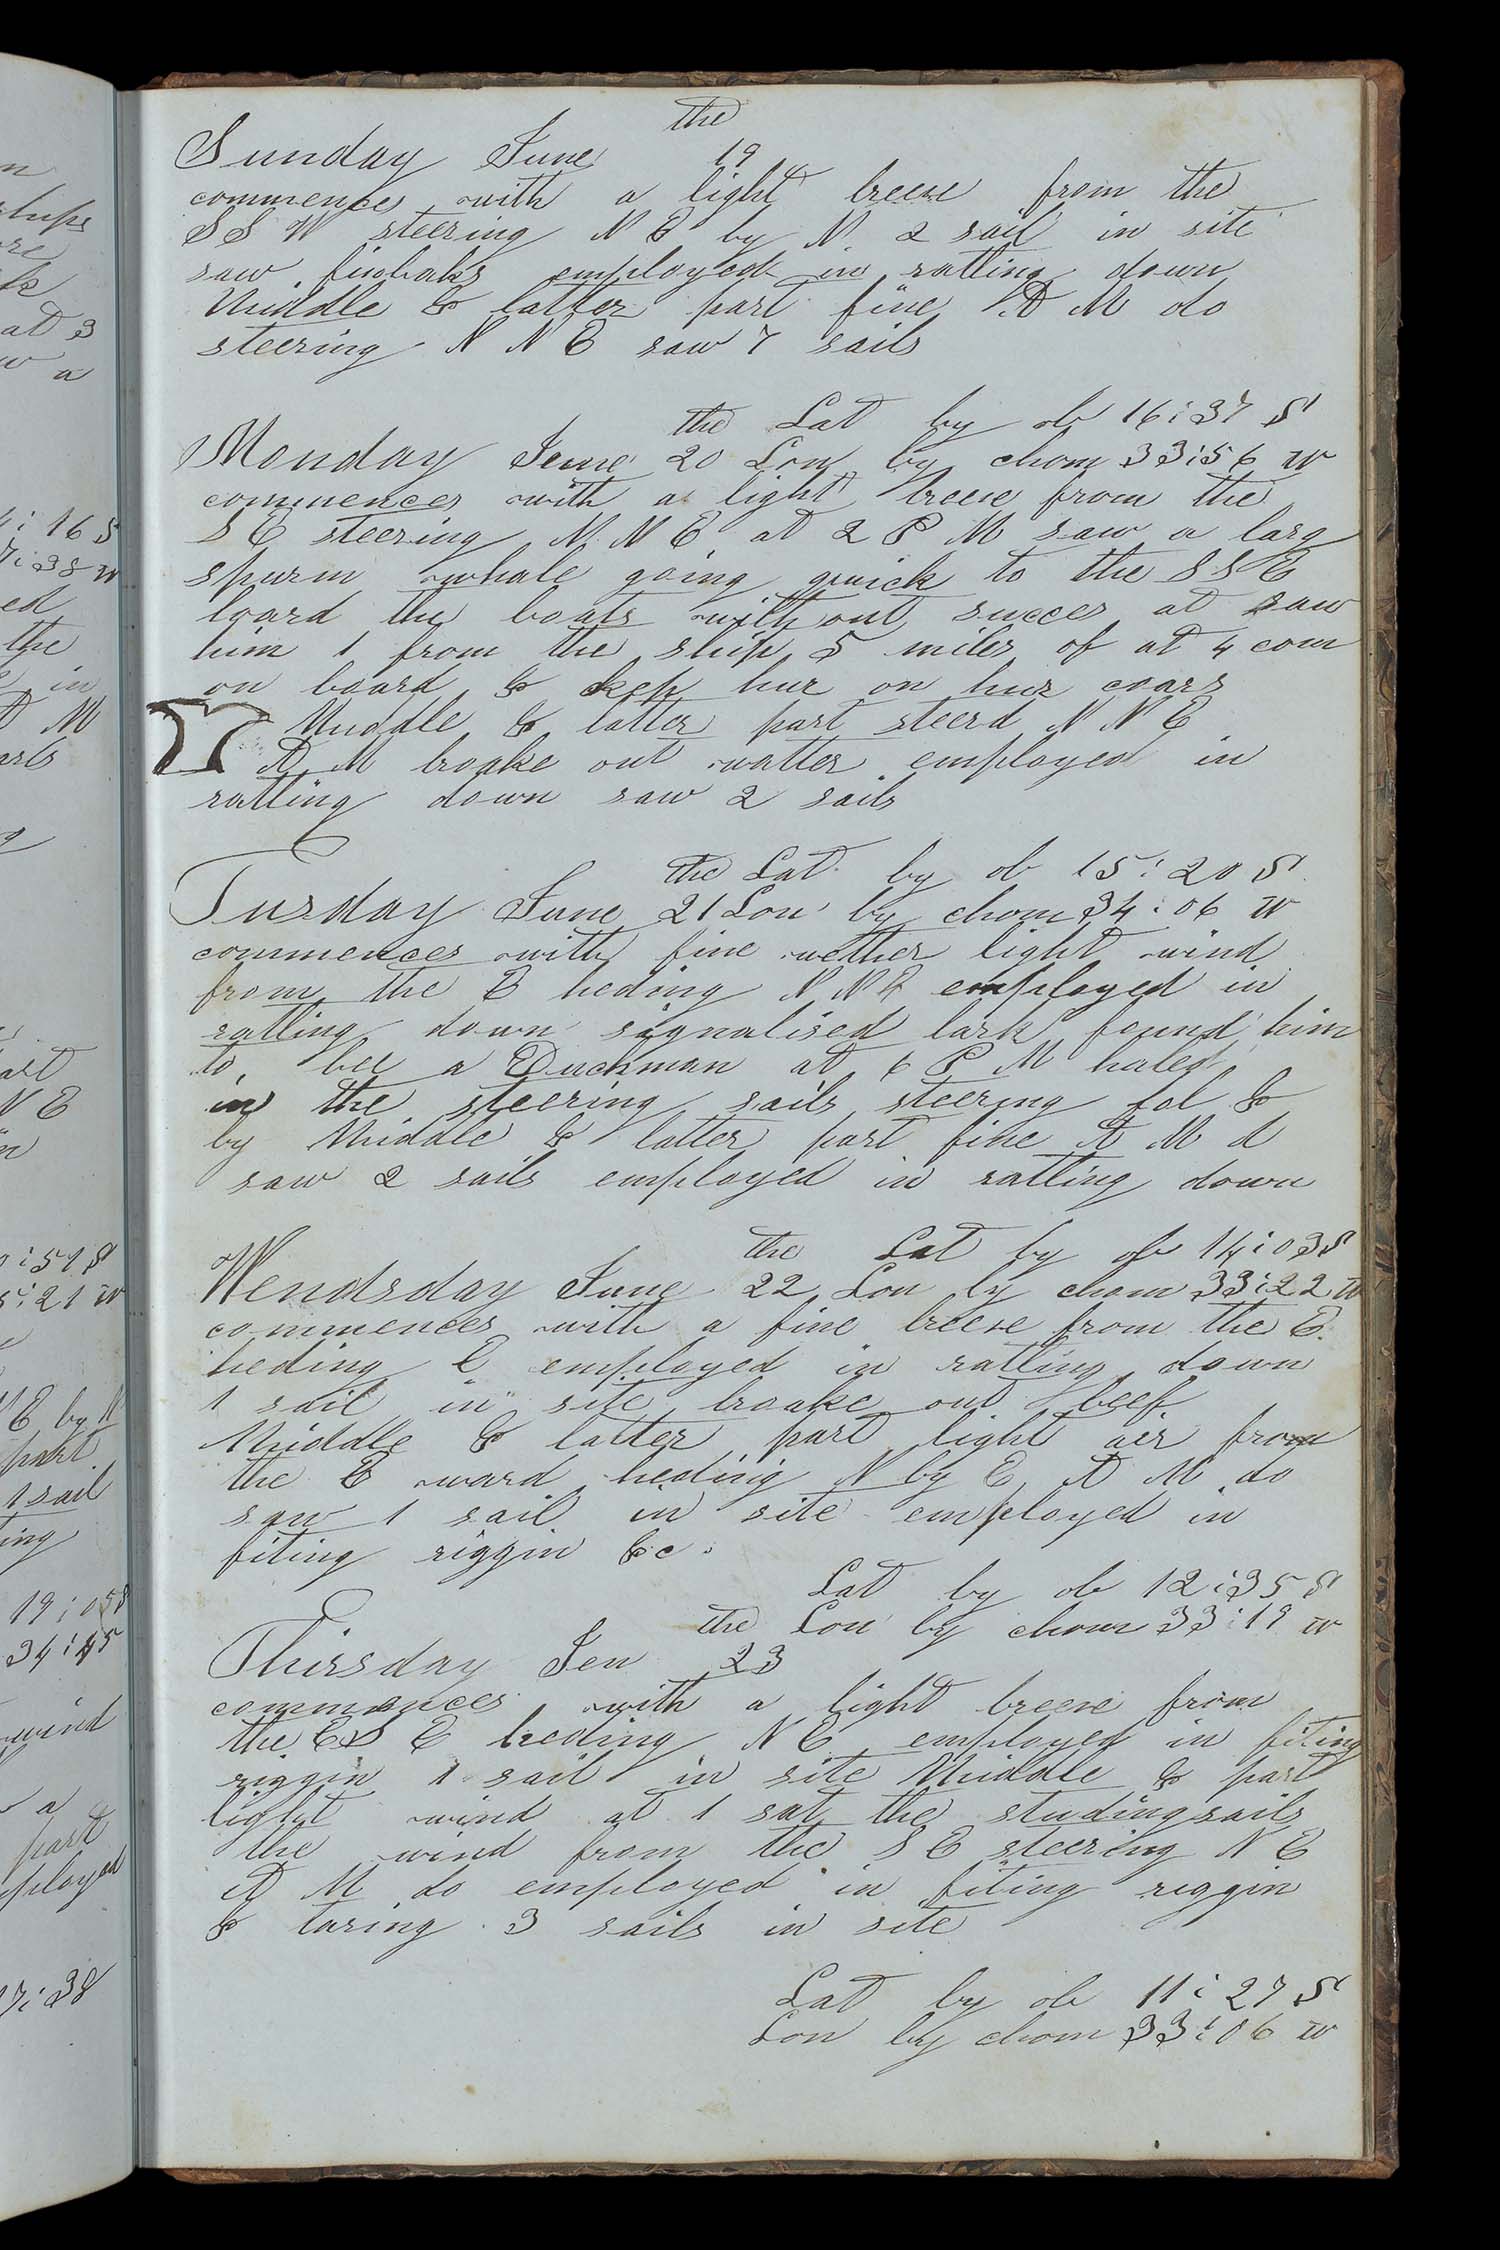 the
Sunday June 19
commences with a light breese from the
S S W steering N E by N 2 sail in site
saw finbaks employed in ratling down
Middle & latter part fine A M do
steering N N E saw 7 sails
the Lat by ob 16:37 S
Monday June 20 Lon by chom 33:56 W
commences with a light breese from the
S E steering N N E at 2 P M saw a larg
spurm whale going quick to the S S E
loard the boats without succes at saw
him 1 from the ship 5 miles of at 4 com
on board & kep hur on hur coars
Middle & latter part steerd N N E
A M broake out watter employed in
ratling down saw 2 sails
the Lat by ob 15:20 S
Tusday June 21 Lon by chom 34:06 W
commences with fine wether light wind
from the E heding N N E employed in
ratling down signalised bark found him
to bee a Duchman at 6 P M haled
in the steering sails steering fol &
by Middle & latter part fine A M d
saw 2 sails employed in ratling down
the Lat by ob 14:03 S
Wendsday June 22 Lon by chom 33:22 W
commences with a fine breese from the E
heding E employed in ratling down
1 sail in site broake out beef
Middle & latter part light air from
the E ward heding N by E A M do
saw 1 sail in site employed in
fiting riggin &c.
Lat by ob 12:35 S
the Lon by chom 33:19 W
Thirsday Jun 23
commences with a light breese from
the E S E heding N E employed in fiting
riggin 1 sail in site Middle & part
light wind at 1 sat the studingsails
the wind from the S E steering N E
A M do employed in fiting riggin
& taring 3 sails in site
Lat by ob 11:27 S
Lon by chom 33:06 W